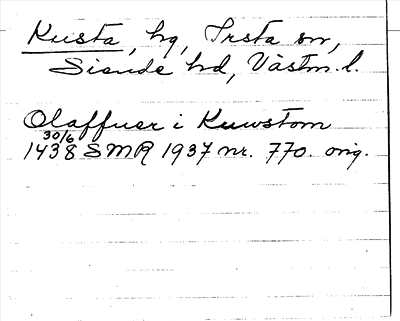 Kusta, hg, Irsta sn,
Siende hd, Västm. l.
Olaffuer i Kuwstom
30/6
1438 SMR 1937 nr. 770. orig.